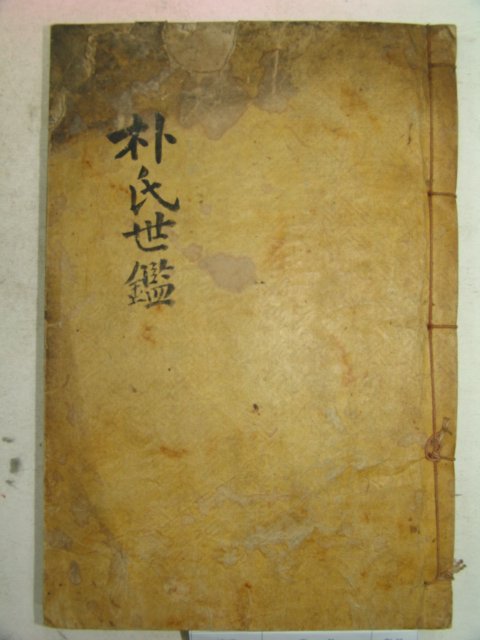 朴氏世鑑